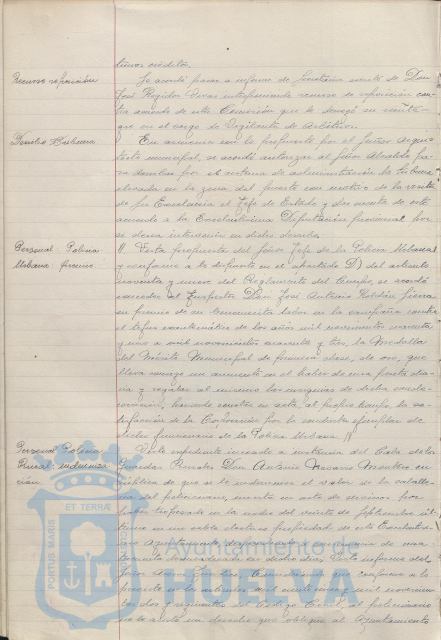 timos créditos.
Recurso reposición
Se acordó pasar a informe de Secretaría escrito de Don
José Regidor Vivas interponiendo recurso de reposición con-
tra acuerdo de esta Comisión que le denegó su reinte-
gro en el cargo de Vigilante de Arbitrios.
Derribo Tribuna
En armonía con lo propuesto por el Señor Arqui-
tecto municipal, se acordó autorizar al Señor Alcalde pa-
ra derribar por el sistema de administración la tribuna
elevada en la zona del puerto con motivo de la visita
de Su Excelencia el Jefe de Estado y dar cuenta de este
acuerdo a la Excelentísima Diputación provincial por
si desea intervención en dicho derribo.
Personal Policía
Urbana premio
Vista propuesta del Señor Jefe de la Policía Urbana
y conforme a lo dispuesto en el apartado D) del artículo
noventa y nueve del Reglamento del Cuerpo, se acordó
conceder al Don José Antonio Roldán
en premio de su benemérita labor en la campaña contra
el tifus exantemático de los años mil novecientos cuarenta
y uno a mil novecientos cuarenta y tres, la Medalla
del Mérito Municipal de primera clase, de oro, que
lleva consigo un aumento en el haber de una peseta dia-
ria y regalar al mismo las insignias de dicha conde-
coración, haciendo constar en acta, al propio tiempo, la sa-
tisfacción de la Corporación por la conducta ejemplar de
dicho funcionario de la Policía Urbana.
Personal Policía
Rural: indemniza-
ción
Visto expediente incoado a instancia del Cabo de los
Guardas Rurales Don Antonio Navarro en
súplica de que se le indemnice el valor de la caballe-
ría del peticionario, muerta en acto de servicio por
haber tropezado en la noche del veinte de Septiembre úl-
timo en un cable eléctrico propiedad de este Excelentísi-
mo Ayuntamiento,
en dicho día. Visto informe del
Señor y conforme a lo
prevenido en los artículos mil novecien-
tos dos y siguientes del Código Civil, al peticionario
no le asiste un derecho que obligue al Ayuntamiento
ET TERRÆ
PORTUS MARIS
Ayuntamiento de
HUELVA